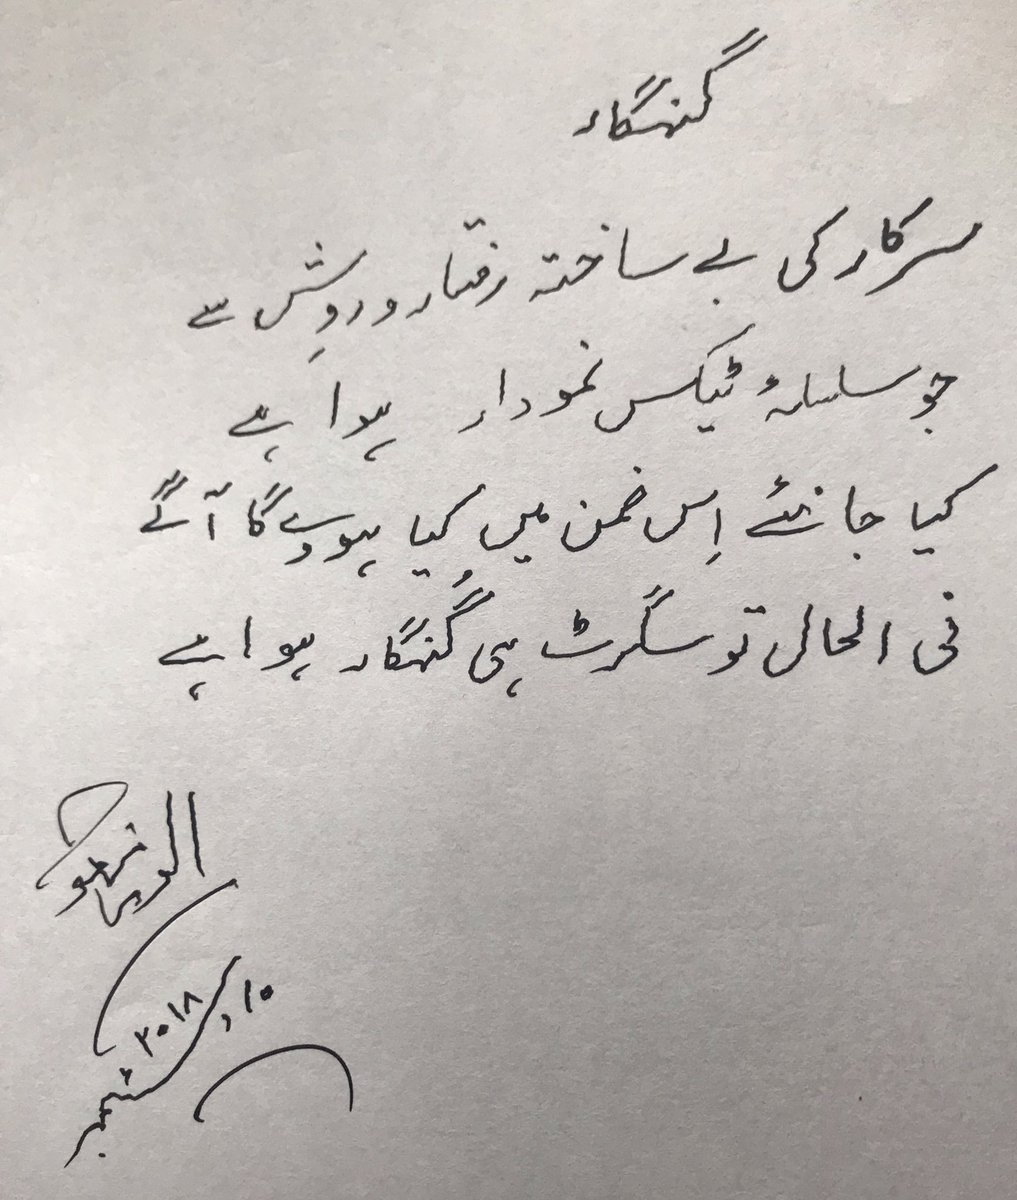 گنہگار
سرکار کی بے ساختہ رفتار و روِش سے
جو سلسلۂ ٹیکس نمودار ہوا ہے
کیا جانئے اِس ضمن میں کیا ہووے گا آگے
فی الحال تو سگرٹ ہی گُنہگار ہوا ہے
۱۰ ستمبر ۲۰۱۸